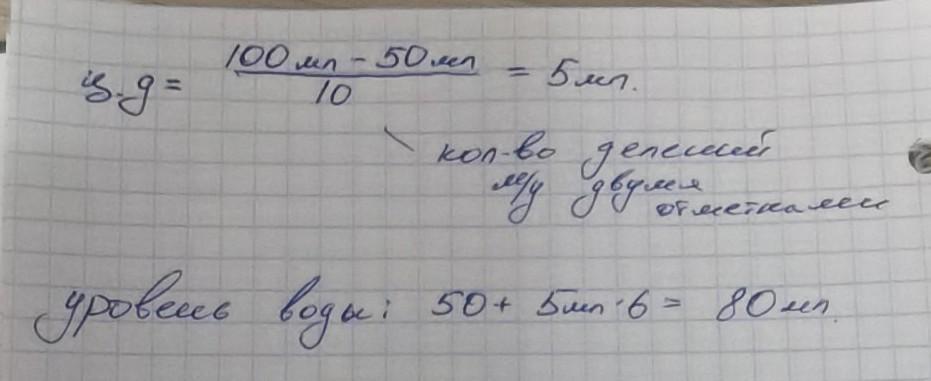 ц.д = (100мл - 50мл) / 10 = 5мл.
кол-во делений
м/у двумя
отметками
уровень воды: 50 + 5мл · 6 = 80мл.